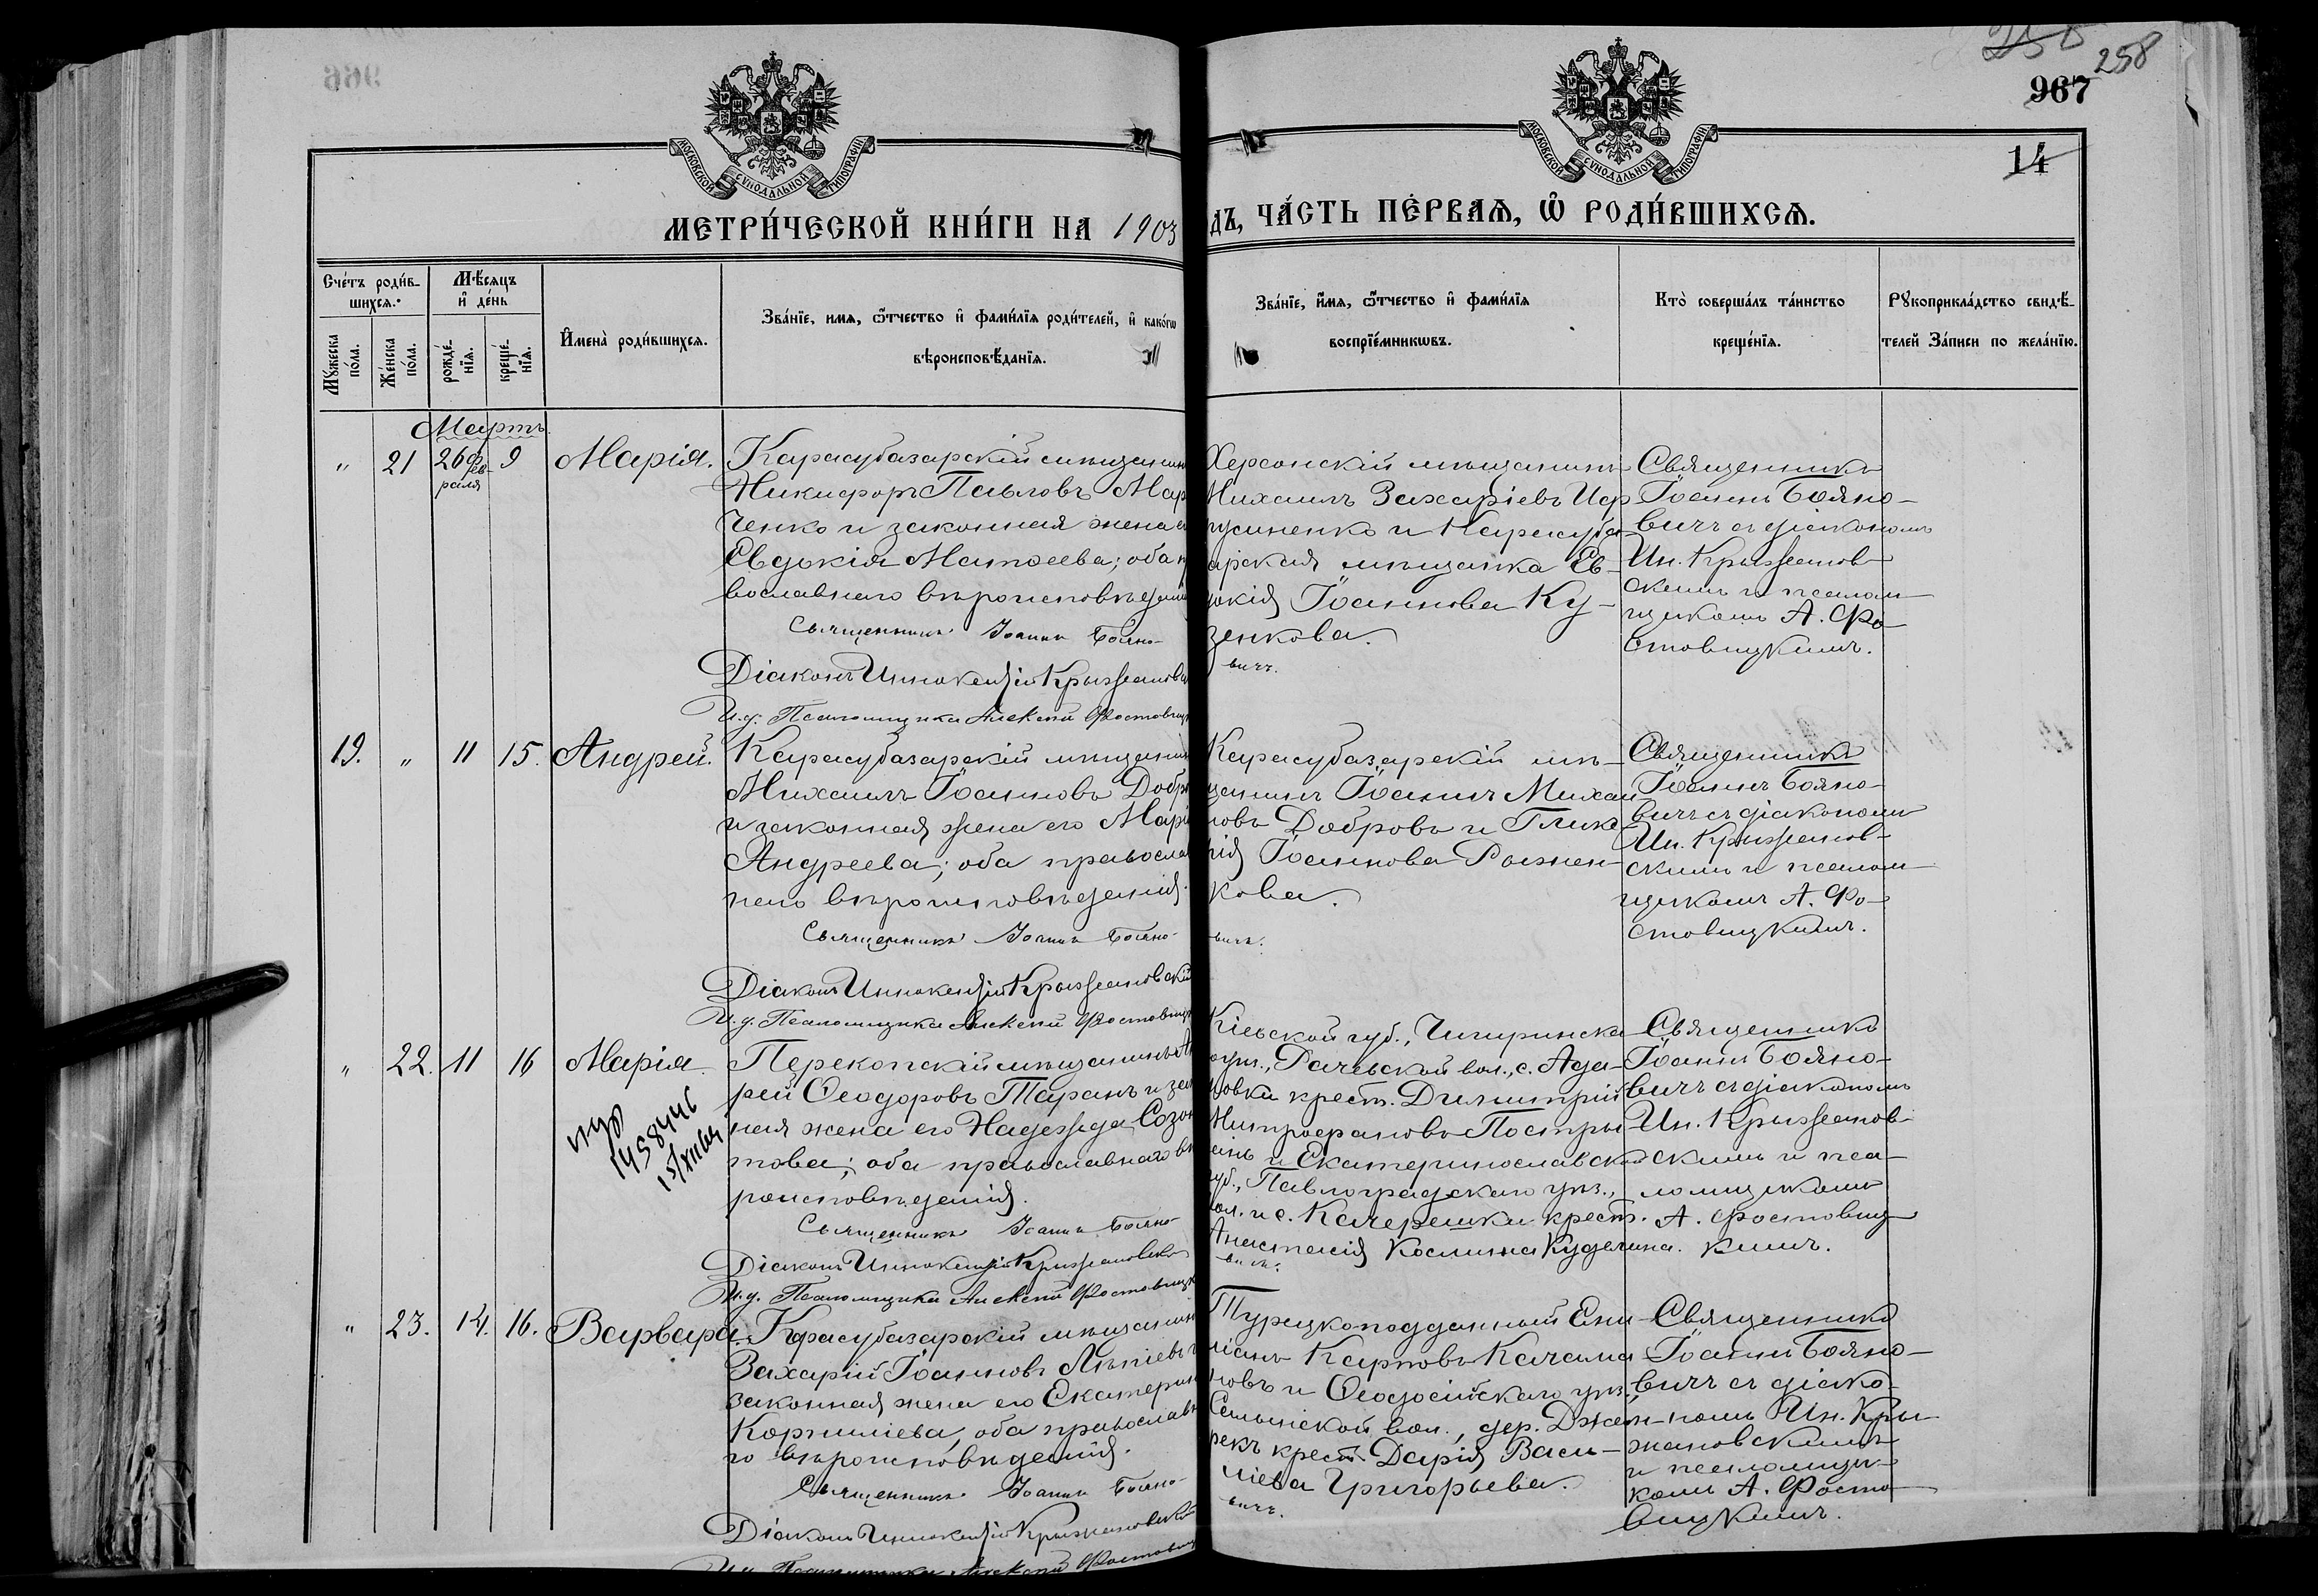 966
258
967
14
МОСКОВСКОЙ СѴНОДАЛЬНОЙ ТИПОГРАФІИ
МОСКОВСКОЙ СѴНОДАЛЬНОЙ ТИПОГРАФІИ
МЕТРИ́ЧЕСКОЙ КНИ́ГИ НА 1903
ДЪ, ЧА́СТЬ ПЕ́РВАѦ, Ѡ҆ РОДИ́ВШИХСѦ.
Сче́тъ роди́в-
шихсѧ.
Мꙋ́жеска
по́ла.
Же́нска
по́ла.
Мѣ́сѧцъ
и҆ де́нь
рожде́-
нїѧ.
креще́-
нїѧ.
И҆мена̀ роди́вшихсѧ.
Зва́нїе, имѧ, ѻ҆́тчество и҆ фами́лїѧ роди́телей, и҆ како́гѡ
вѣроисповѣ́данїѧ.
Зва́нїе, и҆́мѧ, ѻ҆́тчество и҆ фами́лїѧ
воспрїе́мникѡвъ.
Кто̀ соверша́лъ та́инство
креще́нїѧ.
Рꙋкоприкла́дство свидѣ́-
телей За́писи по жела́нїю.
Мартъ
" 21 26 фев- 9 Марія.
раля
Карасубазарскій мѣщанин
Никифоръ Павловъ Мар
ченко и законная жена е
Евдокія Матѳеева; оба п
вославнаго вѣроисповѣдані
Священникъ Іоаннъ Бояно-
Діаконъ Иннокентій Крыжановск
И.д. Псаломщика Алексѣй Фостовиц
Херсонскій мѣщанинъ
Михаилъ Захаріевъ
и Карасуба
арская мѣщанка Ев-
докія Іоаннова Ку-
зенкова.
вичъ.
Священникъ
Іоаннъ Бояно-
вичъ съ діакономъ
Ин. Крыжанов-
скимъ и псалом-
щикомъ А. Фо-
стовицкимъ.
19. " 11 15. Андрей.
Карасубазарскій мѣщанин
Михаилъ Іоанновъ Добр
и законная жена его Марі
Андреева; оба православ
наго вѣроисповѣданія.
Священникъ Іоаннъ Бояно-
Діаконъ Иннокентій Крыжановскій
И.д. Псаломщика Алексѣй Фостовиц
Карасубазарскій мѣ-
щанинъ Іоаннъ Михаи
новъ Добровъ и Глике
рія Іоаннова Рыжен-
кова.
вичъ.
Священникъ
Іоаннъ Бояно-
вичъ съ діакономъ
Ин. Крыжанов-
скимъ и псалом-
щикомъ А. Фо-
стовицкимъ.
" 22. 11 16 Марія.
Перекопскій мѣщанинъ Ан
рей Ѳеодоровъ Таранъ и зак
ная жена его Надежда Созон
това; оба православнаго вѣ
роисповѣданія.
Священникъ Іоаннъ Бояно-
Діаконъ Иннокентій Крыжановскій
И.д. Псаломщика Алексѣй Фостовицк
Кіевской губ., Чигиринска
уѣз., Рачевской вол., с. Ада-
мовки крест. Димитрій
Митрофановъ Постры
ань и Екатеринославск
губ., Павлоградскаго уѣз.,
вол. и с. Кочережки крест.
Анастасія Космина Куделина.
вичъ.
Священникъ
Іоаннъ Бояно-
вичъ съ діакономъ
Ин. Крыжанов-
скимъ и пса-
ломщикомъ
А. Фостовиц-
кимъ.
" 23. 14. 16. Варвара.
Карасубазарскій мѣщанин
Захарій Іоанновъ
законная жена его Екатерин
Корниліева, оба православн
го вѣроисповѣданія.
Священникъ Іоаннъ Бояно-
Діаконъ Иннокентій Крыжановскій
И.д. Псаломщика Алексѣй Фостовиц
Турецкоподданный Еми
ліанъ Карповъ Калама
новъ и Ѳеодосійскаго уѣз.,
вол., дер. Джан-
рекъ крест. Дарія Васи-
ліева Григорьева.
вичъ.
Священникъ
Іоаннъ Бояно-
вичъ съ діако-
номъ Ин. Кры-
жановскимъ
и псаломщи-
комъ А. Фосто-
вицкимъ.